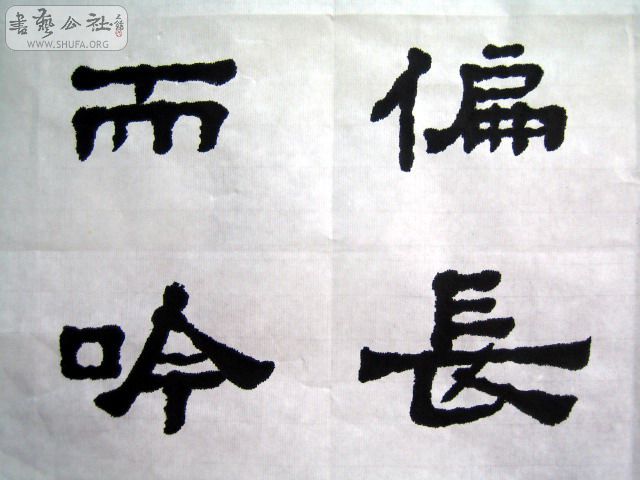 偏長
而吟
書藝公社
WWW.SHUFA.ORG